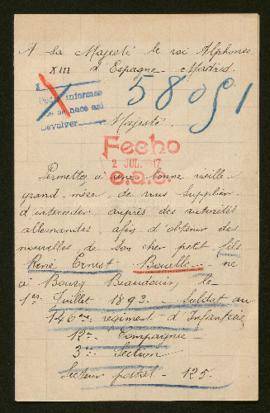 A Sa Majesté le roi Alphonse
XIII d'Espagne - Madrid.
58091
Majesté
Fecho
2 JUL. 1917
Permettez à une bonne vieille
grand mère, de vous supplier
d'intercéder auprès des autorités
allemandes afin d'obtenir des
nouvelles de son cher petit fils
René Ernest Bouette né
à Bourg Beaudouin, le
1er Juillet 1892 - Soldat au
146me regiment d'Infanterie
12me Compagnie
3me Section
Secteur postal 125.